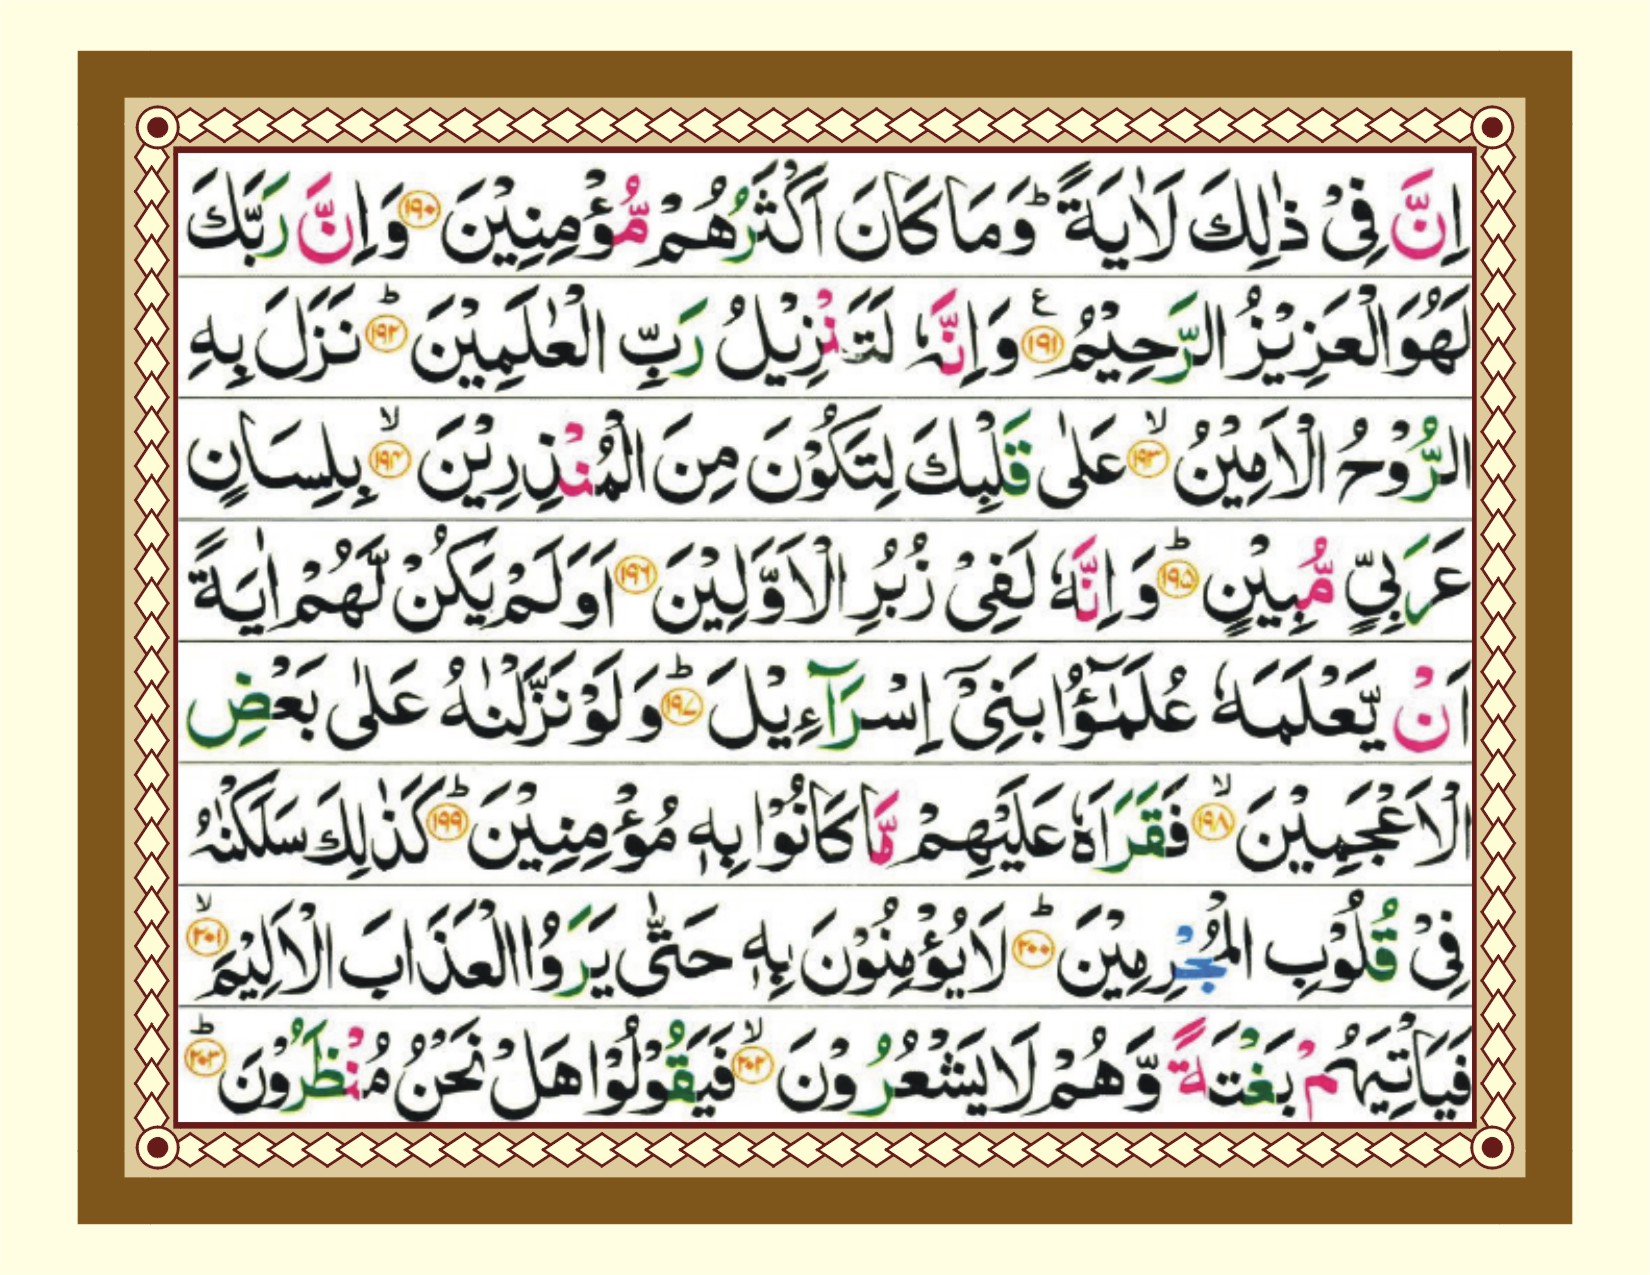 اِنَّ فِىْ ذٰلِكَ لَاٰيَةً ؕ وَمَا كَانَ اَكْثَرُهُمْ مُّؤْمِنِيْنَ ۱۹۰ وَاِنَّ رَبَّكَ
لَهُوَ الْعَزِيْزُ الرَّحِيْمُ ۱۹۱ ع وَاِنَّهٗ لَتَنْزِيْلُ رَبِّ الْعٰلَمِيْنَ ۱۹۲ ؕ نَزَلَ بِهِ
الرُّوْحُ الْاَمِيْنُ ۱۹۳ ۙ عَلٰى قَلْبِكَ لِتَكُوْنَ مِنَ الْمُنْذِرِيْنَ ۱۹۴ ۙ بِلِسَانٍ
عَرَبِىٍّ مُّبِيْنٍ ۱۹۵ ؕ وَاِنَّهٗ لَفِىْ زُبُرِ الْاَوَّلِيْنَ ۱۹۶ اَوَلَمْ يَكُنْ لَّهُمْ اٰيَةً
اَنْ يَّعْلَمَهٗ عُلَمٰٓؤُا بَنِىْۤ اِسْرَآءِيْلَ ۱۹۷ ؕ وَلَوْ نَزَّلْنٰهُ عَلٰى بَعْضِ
الْاَعْجَمِيْنَ ۱۹۸ ۙ فَقَرَاَهٗ عَلَيْهِمْ مَّا كَانُوْا بِهٖ مُؤْمِنِيْنَ ۱۹۹ ؕ كَذٰلِكَ سَلَكْنٰهُ
فِىْ قُلُوْبِ الْمُجْرِمِيْنَ ۲۰۰ ؕ لَا يُؤْمِنُوْنَ بِهٖ حَتّٰى يَرَوُا الْعَذَابَ الْاَلِيْمَ ۲۰۱ ۙ
فَيَاْتِيَهُمْ بَغْتَةً وَّهُمْ لَا يَشْعُرُوْنَ ۲۰۲ ۙ فَيَقُوْلُوْا هَلْ نَحْنُ مُنْظَرُوْنَ ۲۰۳ ؕ